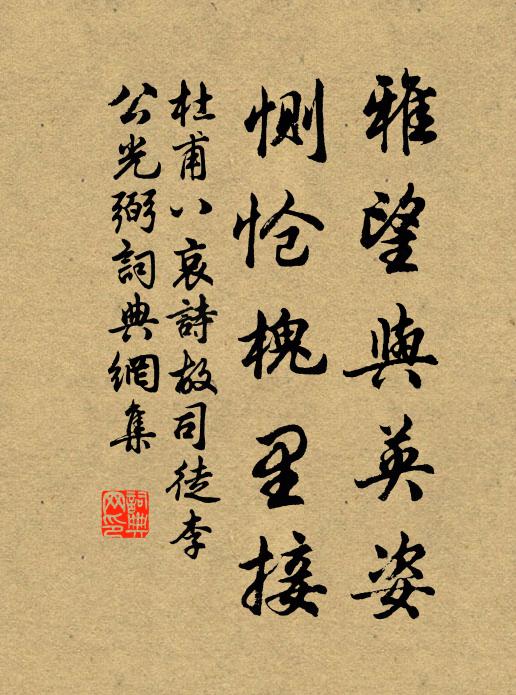 雅望與英姿
惻愴槐里接
杜甫八哀詩故司徒李
公光弼詞典網集
詞典網印